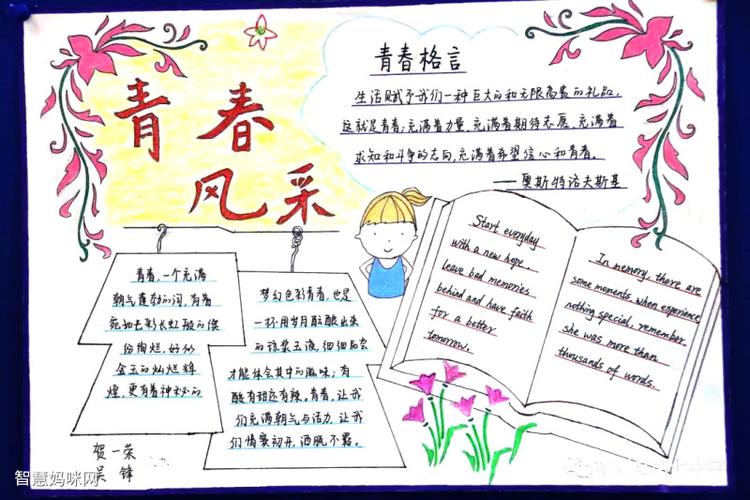 青春
风采
青春格言
生活赋予我们一种巨大的和无限高贵的礼品,
这就是青春:充满着力量,充满着期待志愿,充满着
求知和斗争的志向,充满着希望信心和青春。
——奥斯特洛夫斯基
青春,一个充满
朝气蓬勃的词,有着
宛如七彩长虹般的缤
纷绚烂,好似
金玉的灿烂辉
煌,更有着神秘的
梦幻色彩青春,也是
一杯用岁月酝酿出来
的琼浆玉液,细细品尝
才能体会其中的滋味;有
酸有甜亦有辣。青春,让我
们充满朝气与活力,让我
们情窦初开,洒脱不羁。
Start everyday
with a new hope,
leave bad memories
behind and have faith
for a better
tomorrow.
In memory, there are
some moments, when experience
nothing special, remember
she was more than
thousands of words.
贺一荣
吴锋
智慧妈咪网